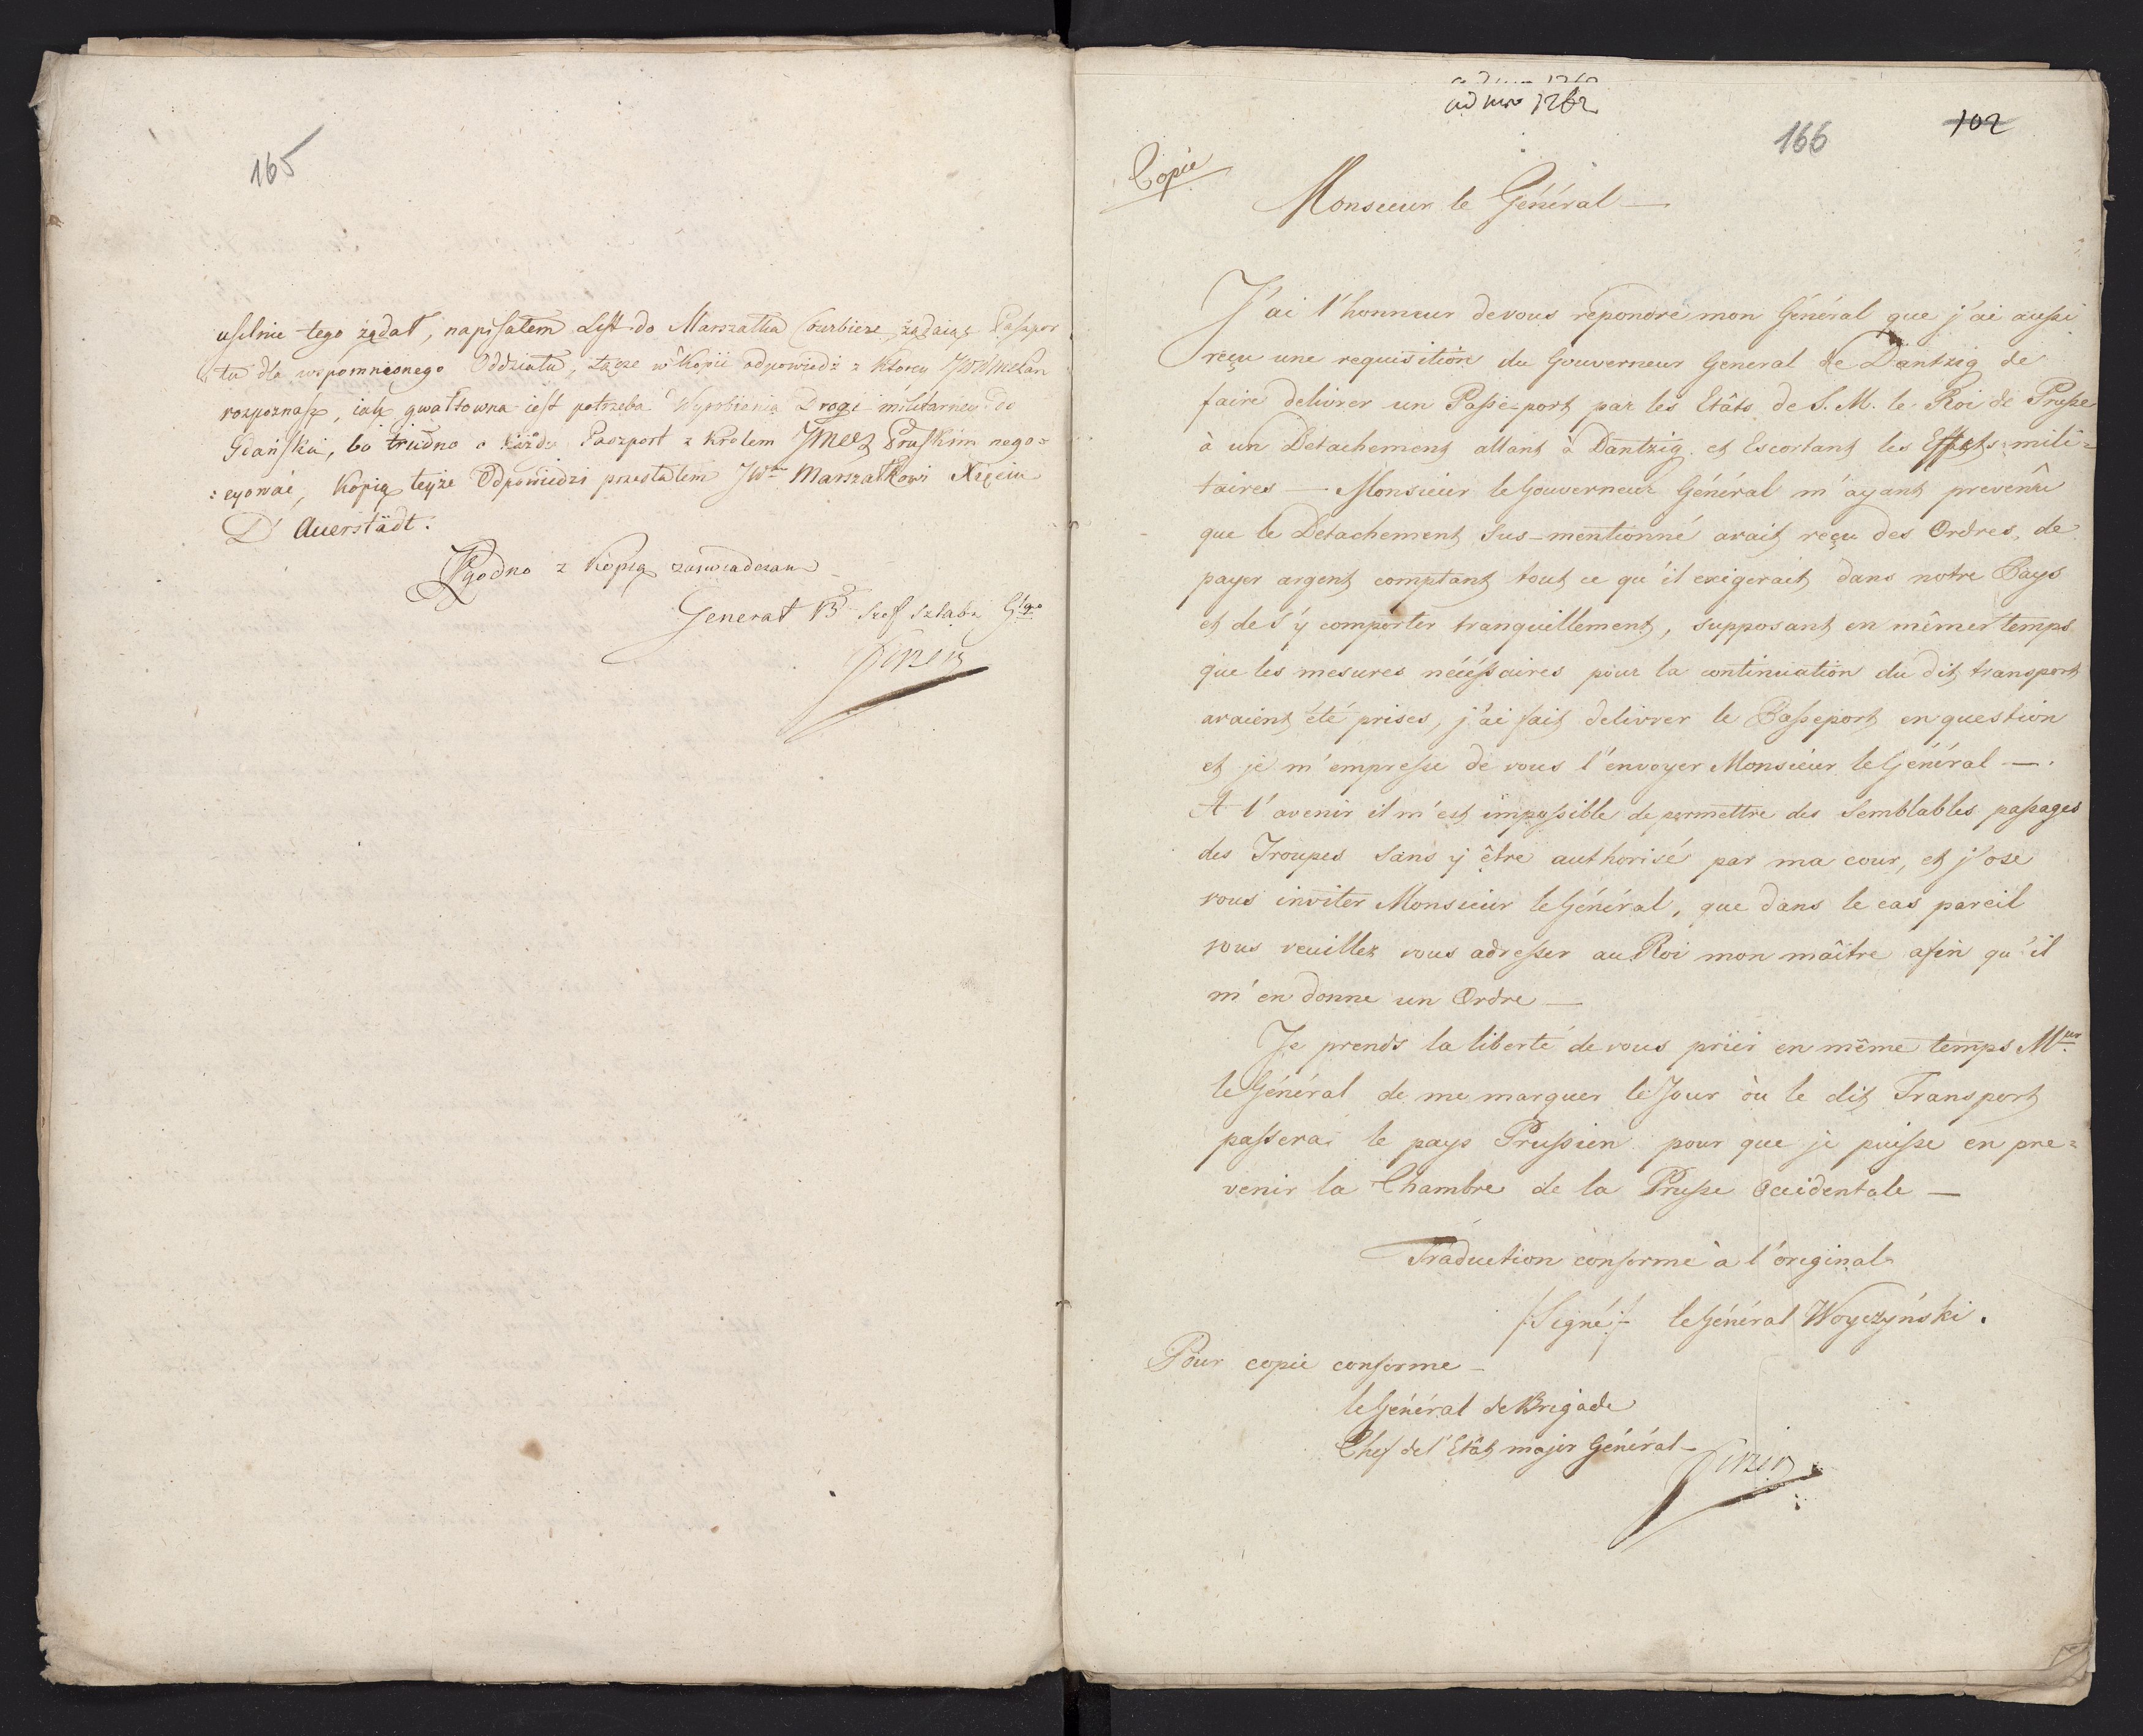 165
usilnie tego żądał, napisałem List do Marszałka Courbiere, żądaiąc Paszpor
„tu dla wspomnionego Oddziału, łączę w Kopii odpowiedź z ktorey
rozpoznasz, iak gwałtowna iest potrzeba Wyrobienia Drogi militarney do
Gdańska, bo trudno o każdy Paszport z Krolem JMcią Pruskim nego=
:cyować, Kopią teyże Odpowiedzi przesłałem JWmu Marszałkowi Xięciu
D'Auerstädt.
Zgodno z Kopią zaświadczam
Generał B. Szef Sztabu Głgo
Fiszer
ad nro 1262
166 102
Copie
Monsieur le Général —
J'ai l'honneur de vous repondre mon Général que j'ai aussi
reçu une requisition du Gouverneur General de Dantzig de
faire delivrer un Passe-port par les Etâts de S. M. le Roi de Prusse
à un Detachement allant à Dantzig et Escortant les Effets mili=
taires — Monsieur le Gouverneur Général m'ayant prevenû
que le Detachement sus-mentionné avait reçu des Ordres, de
payer argent comptant tout ce qu'il exigerait dans notre Pays
et de s'y comporter tranquillement, supposant en même temps
que les mesures nécéssaires pour la continuation du dit transport
avaient été prises, j'ai fait delivrer le Passeport en question
et je m'empresse de vous l'envoyer Monsieur le Général —.
A l'avenir il m'est impossible de permettre des semblables passages
des Troupes sans y être authorisé par ma cour, et j'ose
vous inviter Monsieur le Général, que dans le cas pareil
vous veuillez vous adresser au Roi mon maître afin qu'il
m'en donne un Ordre —
Je prends la liberté de vous prier en même temps Mur
le Général de me marquer le Jour où le dit Transport
passera le pays Prussien pour que je puisse en pre=
venir la Chambre de la Prusse Occidentale —
Traduction conforme à l'original
/:Signé:/ le Général Woyczyński.
Pour copie conforme —
le Général de Brigade
Chef de l'Etât major Général —
Fiszer